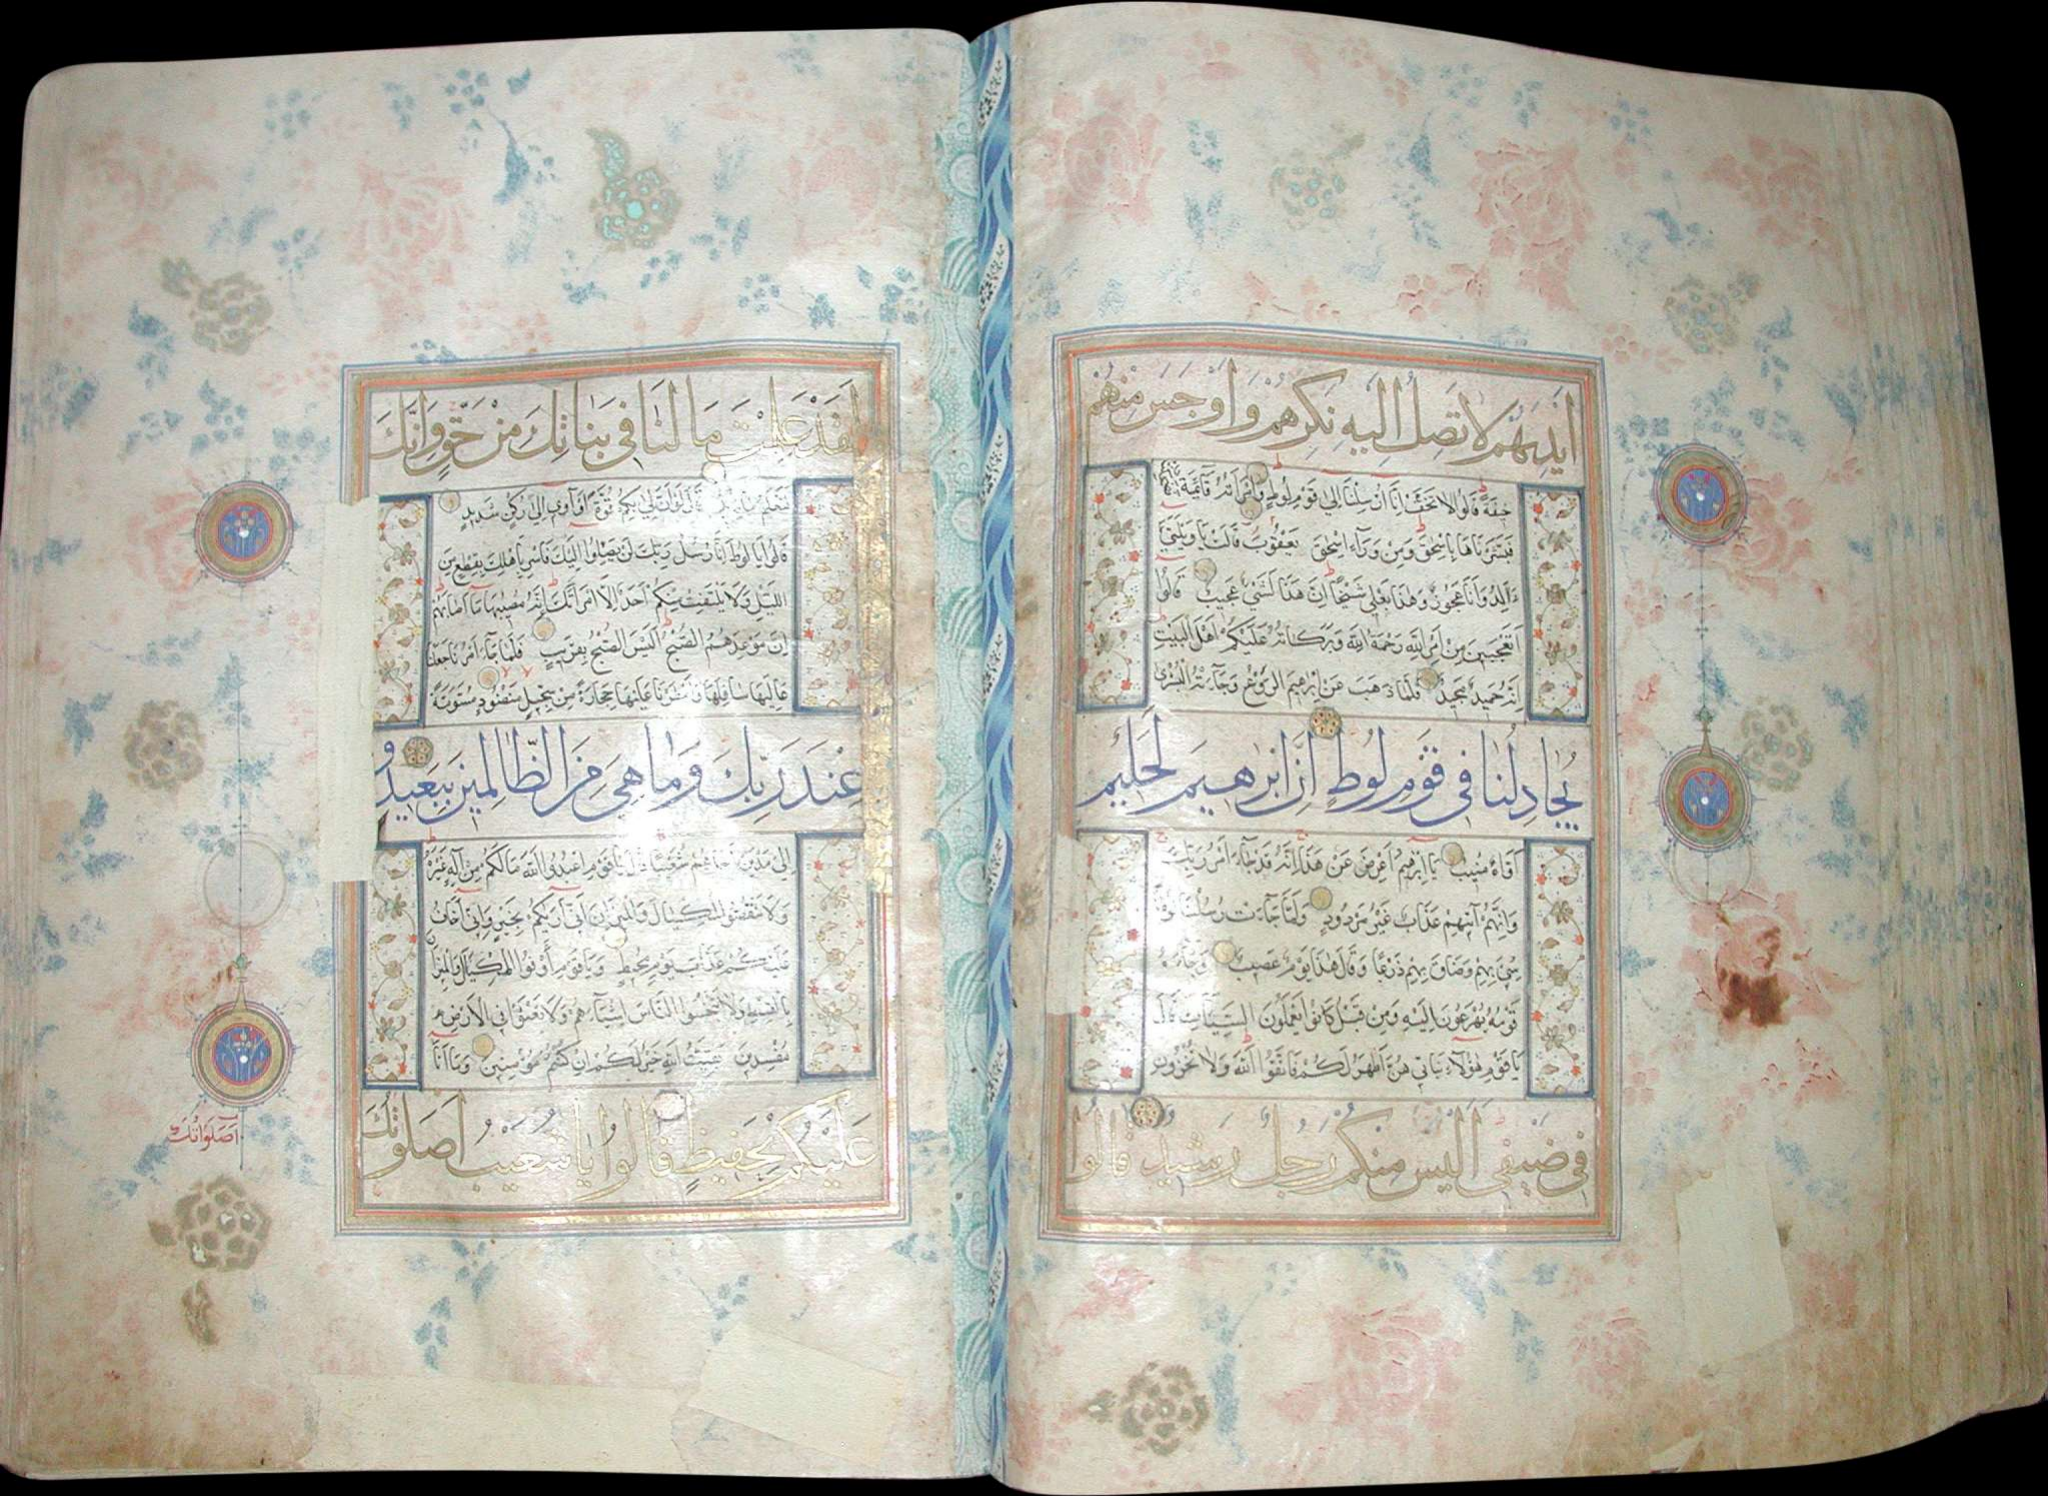 أَيْدِيَهُمْ لَا تَصِلُ إِلَيْهِ نَكِرَهُمْ وَأَوْجَسَ مِنْهُمْ
خِيفَةً قَالُوا لَا تَخَفْ إِنَّا أُرْسِلْنَا إِلَى قَوْمِ لُوطٍ وَامْرَأَتُهُ قَائِمَةٌ
فَبَشَّرْنَاهَا بِإِسْحَقَ وَمِنْ وَرَاءِ إِسْحَقَ يَعْقُوبَ قَالَتْ يَا وَيْلَتَى
ءَأَلِدُ وَأَنَا عَجُوزٌ وَهَذَا بَعْلِي شَيْخًا إِنَّ هَذَا لَشَيْءٌ عَجِيبٌ قَالُوا
أَتَعْجَبِينَ مِنْ أَمْرِ اللَّهِ رَحْمَةُ اللَّهِ وَبَرَكَاتُهُ عَلَيْكُمْ أَهْلَ الْبَيْتِ
إِنَّهُ حَمِيدٌ مَجِيدٌ فَلَمَّا ذَهَبَ عَنْ إِبْرَهِيمَ الرَّوْعُ وَجَاءَتْهُ الْبُشْرَى
يُجَادِلُنَا فِي قَوْمِ لُوطٍ إِنَّ إِبْرَهِيمَ لَحَلِيمٌ
أَوَّاهٌ مُنِيبٌ يَا إِبْرَهِيمُ أَعْرِضْ عَنْ هَذَا إِنَّهُ قَدْ جَاءَ أَمْرُ رَبِّكَ
وَإِنَّهُمْ آتِيهِمْ عَذَابٌ غَيْرُ مَرْدُودٍ وَلَمَّا جَاءَتْ رُسُلُنَا لُوطًا
سِيءَ بِهِمْ وَضَاقَ بِهِمْ ذَرْعًا وَقَالَ هَذَا يَوْمٌ عَصِيبٌ وَجَاءَهُ
قَوْمُهُ يُهْرَعُونَ إِلَيْهِ وَمِنْ قَبْلُ كَانُوا يَعْمَلُونَ السَّيِّئَاتِ قَالَ
يَا قَوْمِ هَؤُلَاءِ بَنَاتِي هُنَّ أَطْهَرُ لَكُمْ فَاتَّقُوا اللَّهَ وَلَا تُخْزُونِ
فِي ضَيْفِي أَلَيْسَ مِنْكُمْ رَجُلٌ رَشِيدٌ قَالُوا
لَقَدْ عَلِمْتَ مَا لَنَا فِي بَنَاتِكَ مِنْ حَقٍّ وَإِنَّكَ
لَتَعْلَمُ مَا نُرِيدُ قَالَ لَوْ أَنَّ لِي بِكُمْ قُوَّةً أَوْ آوِي إِلَى رُكْنٍ شَدِيدٍ
قَالُوا يَا لُوطُ إِنَّا رُسُلُ رَبِّكَ لَنْ يَصِلُوا إِلَيْكَ فَأَسْرِ بِأَهْلِكَ بِقِطْعٍ مِنَ
اللَّيْلِ وَلَا يَلْتَفِتْ مِنْكُمْ أَحَدٌ إِلَّا امْرَأَتَكَ إِنَّهُ مُصِيبُهَا مَا أَصَابَهُمْ
إِنَّ مَوْعِدَهُمُ الصُّبْحُ أَلَيْسَ الصُّبْحُ بِقَرِيبٍ فَلَمَّا جَاءَ أَمْرُنَا جَعَلْنَا
عَالِيَهَا سَافِلَهَا وَأَمْطَرْنَا عَلَيْهَا حِجَارَةً مِنْ سِجِّيلٍ مَنْضُودٍ مُسَوَّمَةً
عِنْدَ رَبِّكَ وَمَا هِيَ مِنَ الظَّالِمِينَ بِبَعِيدٍ وَ
إِلَى مَدْيَنَ أَخَاهُمْ شُعَيْبًا قَالَ يَا قَوْمِ اعْبُدُوا اللَّهَ مَا لَكُمْ مِنْ إِلَهٍ غَيْرُهُ
وَلَا تَنْقُصُوا الْمِكْيَالَ وَالْمِيزَانَ إِنِّي أَرَيكُمْ بِخَيْرٍ وَإِنِّي أَخَافُ
عَلَيْكُمْ عَذَابَ يَوْمٍ مُحِيطٍ وَيَا قَوْمِ أَوْفُوا الْمِكْيَالَ وَالْمِيزَانَ
بِالْقِسْطِ وَلَا تَبْخَسُوا النَّاسَ أَشْيَاءَهُمْ وَلَا تَعْثَوْا فِي الْأَرْضِ
مُفْسِدِينَ بَقِيَّتُ اللَّهِ خَيْرٌ لَكُمْ إِنْ كُنْتُمْ مُؤْمِنِينَ وَمَا أَنَا
عَلَيْكُمْ بِحَفِيظٍ قَالُوا يَا شُعَيْبُ أَصَلَوتُكَ
أَصَلَوَاتُكَ